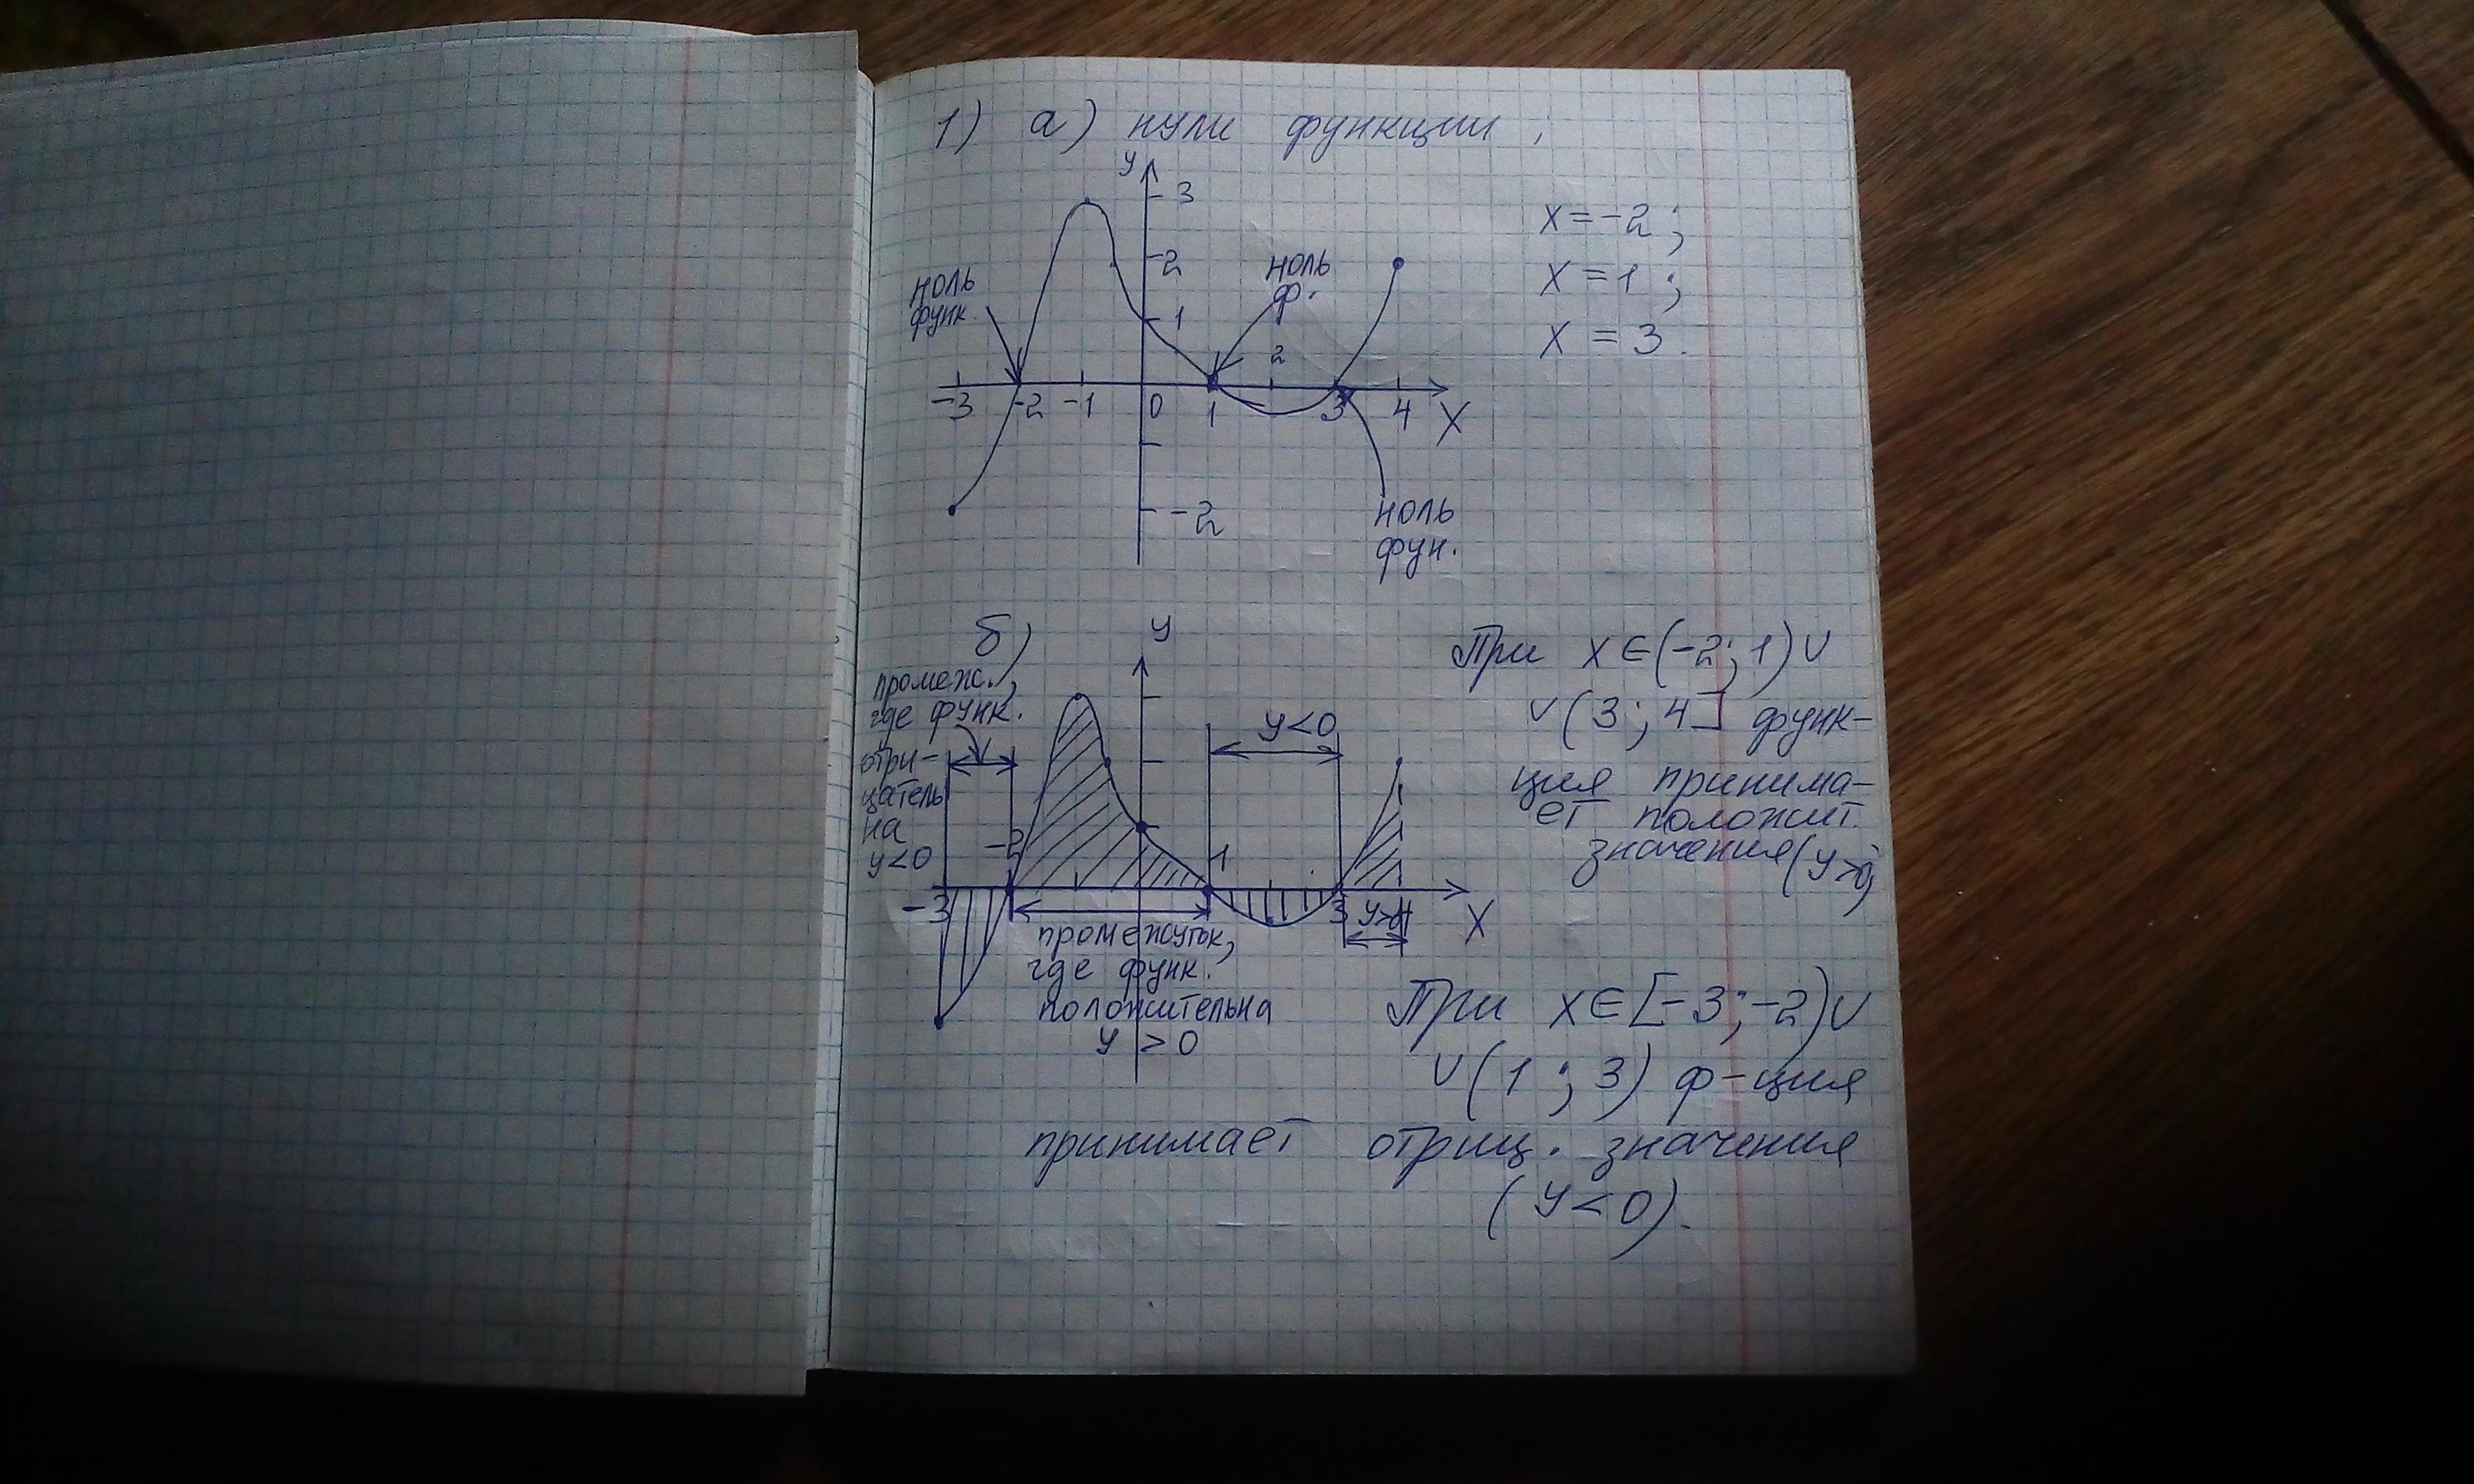 1) а) нули функции;
у
3
2
1
ноль
функ.
ноль
ф.
2
-3 -2 -1 0 1 3 4 X
-2
ноль
фун.
x = -2;
x = 1;
x = 3.
б)
у
промеж.,
где функ.
отри-
цатель
на
y<0
-2
y<0
1
-3
3
y>0
4
X
промежуток,
где функ.
положительна
y > 0
При x ∈ (-2; 1) ∪
∪ (3; 4] функ-
ция принима-
ет положит.
значения (y>0)
При x ∈ [-3; -2) ∪
∪ (1; 3) ф-ция
принимает отриц. значения
(y<0).